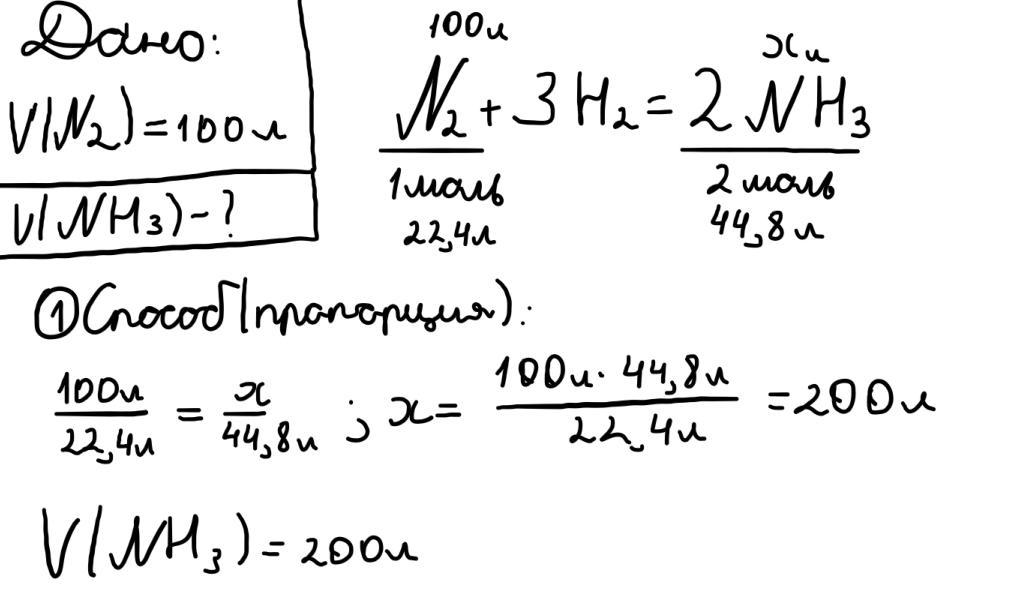 Дано:
V(N₂) = 100 л
V(NH₃) - ?
100 л x л
N₂ + 3H₂ = 2NH₃
1 моль 2 моль
22,4 л 44,8 л
① Способ (пропорция):
100 л / 22,4 л = x / 44,8 л ; x = 100 л · 44,8 л / 22,4 л = 200 л
V(NH₃) = 200 л